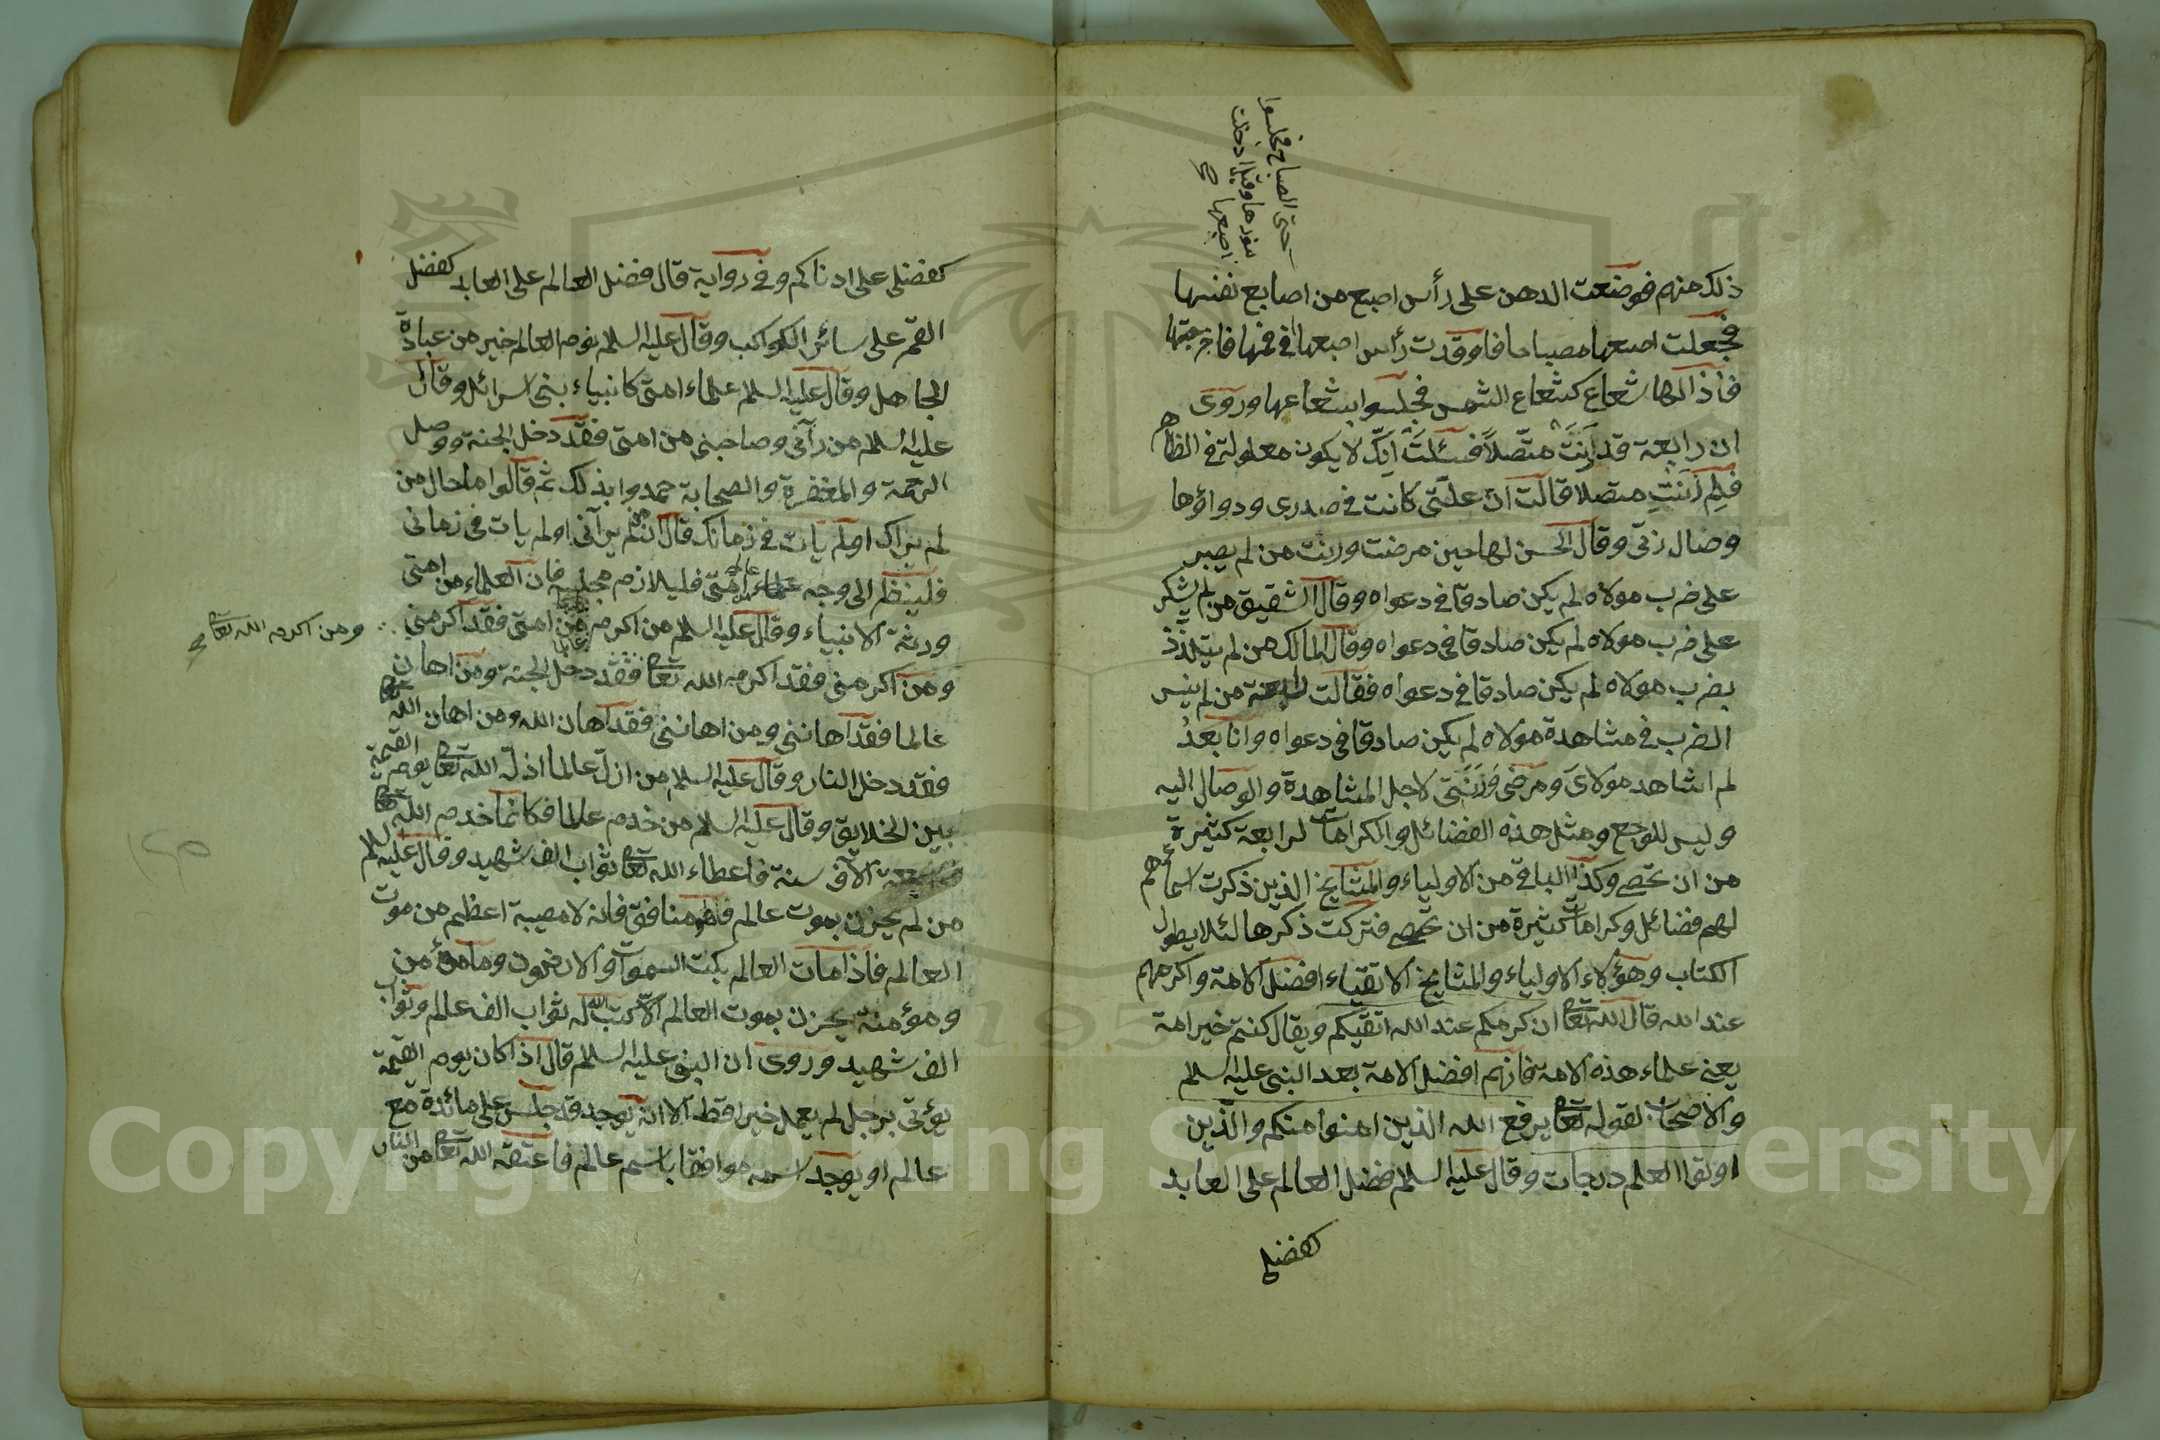 حتى الصباح فجلسوا
بنورها وقيل ادخلت
اصبعها
ذلك منهم فوضعت الدهن على رأس اصبع من اصابع نفسها
فجعلت اصبعها مصباحا فاوقدت رأس اصبعها في فمها فاخرجتها
فاذا لها شعاع كشعاع الشمس فجلسوا بشعاعها وروى
ان رابعة قد أنّت متّصلاً فسئلت انّك لا يكون معلولة في الظاهر
فلم رننت متصلا قالت ان علتى كانت في صدرى ودواؤها
وصال ربّى وقال الحسن لها حين مرضت ورنت من لم يصبر
على ضرب مولاه لم يكن صادقا في دعواه وقال الشقيق من لم يشكر
على ضرب مولاه لم يكن صادقا في دعواه وقال المالك من لم يتلذذ
بضرب مولاه لم يكن صادقا في دعواه فقالت رابعة من لم ينس
الضرب في مشاهدة مولاه لم يكن صادقا في دعواه وانا بعدُ
لم اشاهد مولاى ومرضى ورنّتى لاجل المشاهدة والوصال اليه
وليس للوجع ومثل هذه الفضائل والكرامات لرابعة كثيرة
من ان تحصى وكذا الباقى من الاولياء والمشايخ الذين ذكرت اسماءهم
لهم فضائل وكرامات كثيرة من ان تحصى فتركت ذكرها لئلا يطول
الكتاب وهؤلاء الاولياء والمشايخ الاتقياء افضل الامة واكرمهم
عند الله قال الله تعالى ان كرمكم عند الله اتقيكم ويقال كنتم خير امة
يعنى علماء هذه الامة فانهم افضل الامة بعد النبى عليه السلام
والاصحاب لقوله تعالى يرفع الله الذين امنوا منكم والّذين
اوتوا العلم درجات وقال عليه السلام فضل العالم على العابد
كفضلى
كفضلى على ادناكم وفى رواية قال فضل العالم على العابد كفضل
القمر على سائر الكواكب وقال عليه السلام نوم العالم خير من عبادة
الجاهل وقال عليه السلام علماء امتى كانبياء بنى اسرائل وقال
عليه السلام من رآنى وصاحبنى من امتى فقد دخل الجنة ووصل
الرحمة والمغفرة والصحابة حمدوا بذلك ثم قالوا ما حال من
لم يراك اولم يأت في زمانك قال ان من لم يرآنى اولم يأت في زمانى
فلينظر الى وجه علماء امتى فليلازم مجلسه فان العلماء من امتى
ورثة الانبياء وقال عليه السلام من اكرم من امتى فقد اكرمنى
ومن اكرمه الله تعالى
ومن اكرمنى فقد اكرمه الله تعالى فقد دخل الجنة ومن اهان
عالما فقد اهاننى ومن اهاننى فقد اهان الله ومن اهان الله تعالى
فقد دخل النار وقال عليه السلام من اذلّ عالما اذلّه الله تعالى يوم القيمة
بين الخلايق وقال عليه السلام من خدم عالما فكانما خدم الله تعالى
سبعة الآف سنة فاعطاء الله تعالى ثواب الف شهيد وقال عليه السلام
من لم يحزن بموت عالم فهو منافق فانه لا مصيبة اعظم من موت
العالم فاذا مات العالم بكت السموات والارضون وما من مؤمن
ومؤمنة يحزن بموت العالم الاّ كتب الله له ثواب الف عالم وثواب
الف شهيد وروى ان النبى عليه السلام قال اذا كان يوم القيمة
يؤتى برجل لم يعمل خيرا قط الا انه يوجد قد جلس على مائدة مع
عالم او يوجد اسمه موافقا باسم عالم فاعتقه الله تعالى من النار
Copyright © King Saud University